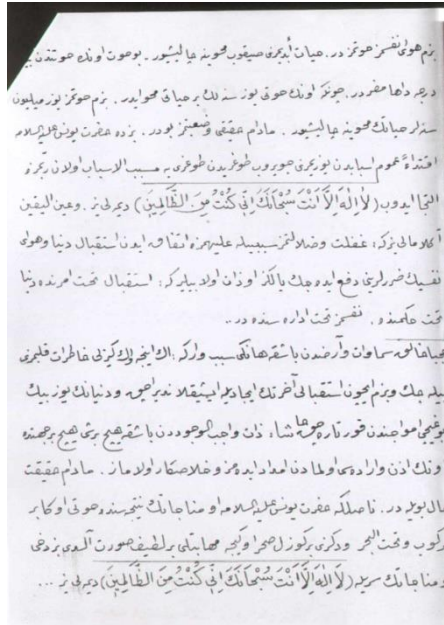 بزم هواى نفسمز حوتمزدر. حيات أبديمزى صيقوب محوينه چاليشيور. بو حوت اونك حوتندن بيك
درجه داها مضردر. چونكه اونك حوتى يوز سنه لك بر حياتى محو ايدر. بزم حوتمز يوز ميليون
سنه لر حياتك محوينه چاليشيور. مادام حقيقى وضعيتمز بودر. بزده حضرت يونس عليه السلامه
اقتداءً عموم اسبابدن يوزيمزى چويروب طوغريدن طوغرى يه مسبب الاسباب اولان ربمزه
التجا ايدوب (لَا اِلٰهَ اِلَّا اَنْتَ سُبْحَانَكَ اِنِّى كُنْتُ مِنَ الظَّالِمِينَ) ديمرلى يز. وعين اليقين
آكلامالى يزكه: غفلت وضلالتمز سببيله عليهمزه اتفاق ايدن استقبال دنيا وهواى
نفسيك ضررلرينى دفع ايده جك يالكز او ذات اولابيلير كه: استقبال تحت امرنده دنيا
تحت حكمنده. نفسمز تحت اداره سنده در..
عجبا خالق سماوات وأرضدن باشقه هانكى سبب واركه: اك اينجه واك كيزلى خاطرات قلبمزى
بيله جك وبزم ايچون استقبالى آخرتك ايجاديله ايشيقلانديراجق. ودنيانك يوز بيك
بوغيجى امواجندن قورتاره جق حاشا، ذات واجب الوجوددن باشقه هيچ برشى هيچ برجهتده
اونك اذن واراده سى اولمادن امداد ايده مز وخلاصكار اولاماز. مادام حقيقت
حال بويله در. ناصلكه حضرت يونس عليه السلامه او مناجاتك نتيجه سنده حوتى اوكا بر
مركوب وتحت البحر ودكزى بركوزل صحرا وكيجه مهتابلى بر لطيف صورت آلدى بزدخى
او مناجاتك سريله (لَا اِلٰهَ اِلَّا اَنْتَ سُبْحَانَكَ اِنِّى كُنْتُ مِنَ الظَّالِمِينَ) ديمرلى يز ...